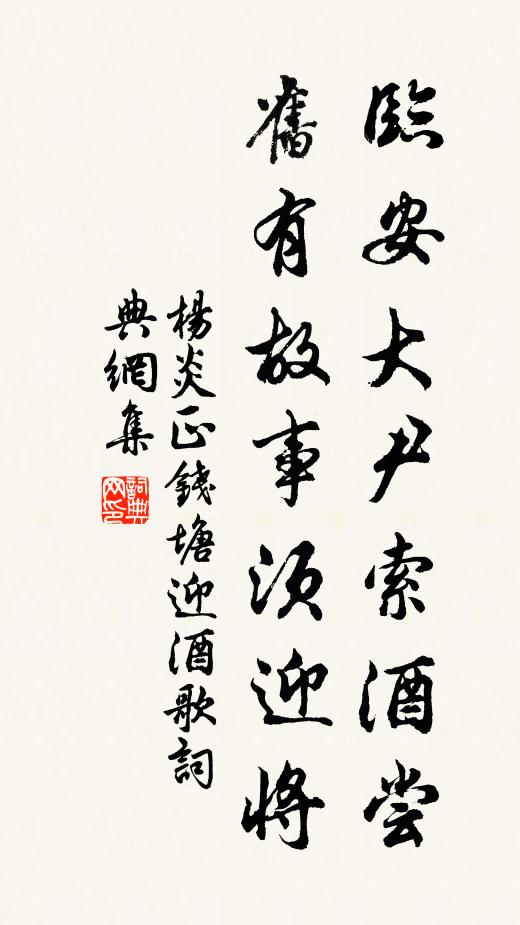 臨安大尹索酒嘗
舊有故事須迎將
楊炎正錢塘迎酒歌詞
典網集
詞典網印